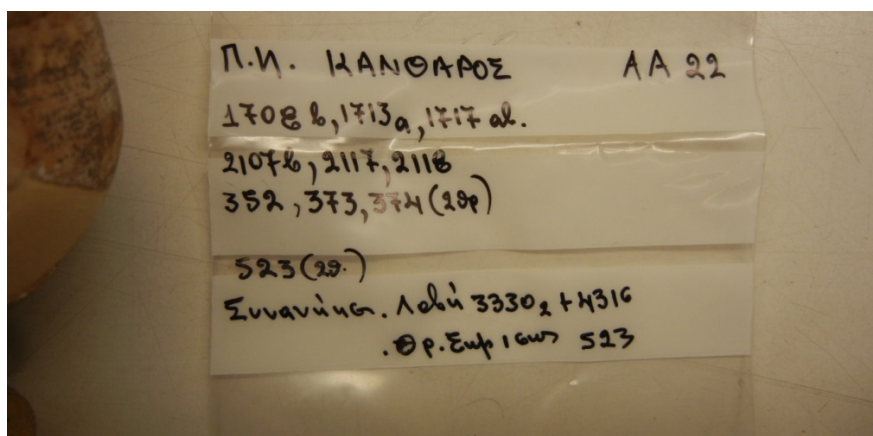 Π.Ν. ΚΑΝΘΑΡΟΣ ΑΑ 22
1708 β, 1713α, 1717 αβ.
2107β, 2117, 2118
352, 373, 374 (2θρ)
523 (2θ.)
Συνανήκει. Λαβή 3330₂ + 4316
523